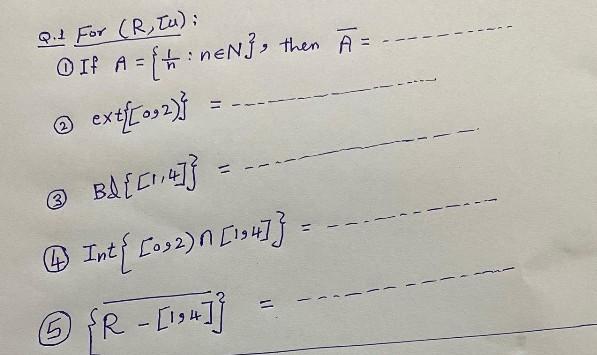 Q.1 For (R, τu) :
① If A = {1/n : n∈N}, then A̅ = ------------
② ext{[0,2)} = ------------
③ Bd{[1,4]} = ------------
④ Int{ [0,2) ∩ [1,4] } = ------------
⑤ {R̅ ̅-̅ ̅[̅1̅,̅4̅]̅} = ------------